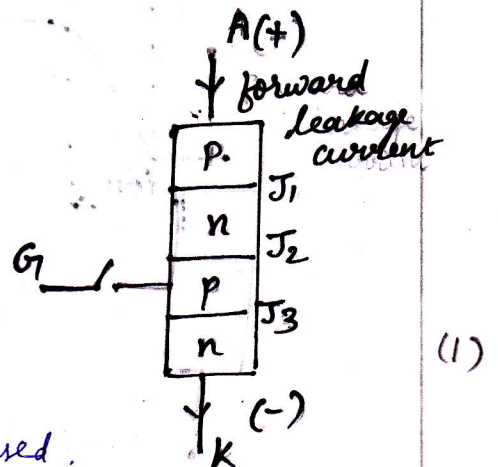 A(+)
forward
leakage
current
p.
J1
n
J2
G
p
J3
n
(1)
(-)
K
sed.